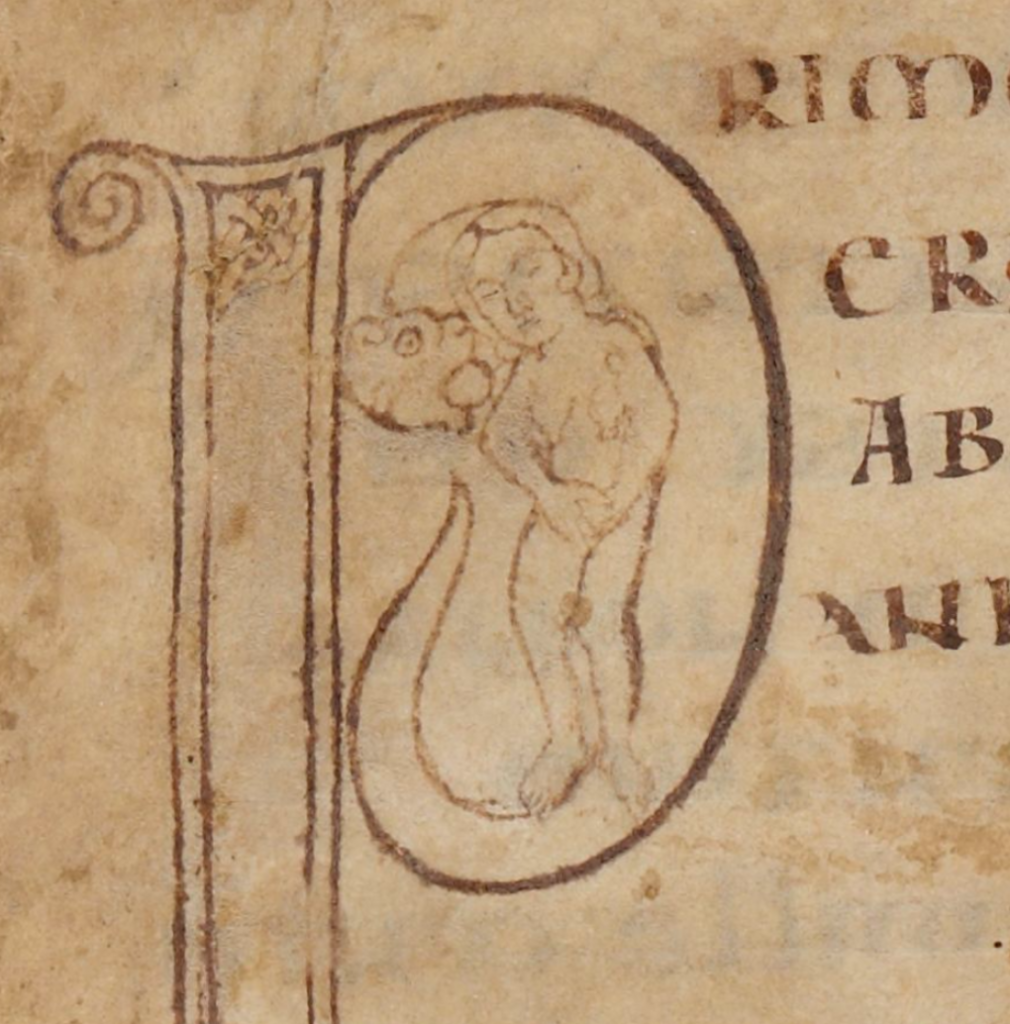 PRIM
CR
AB
AN